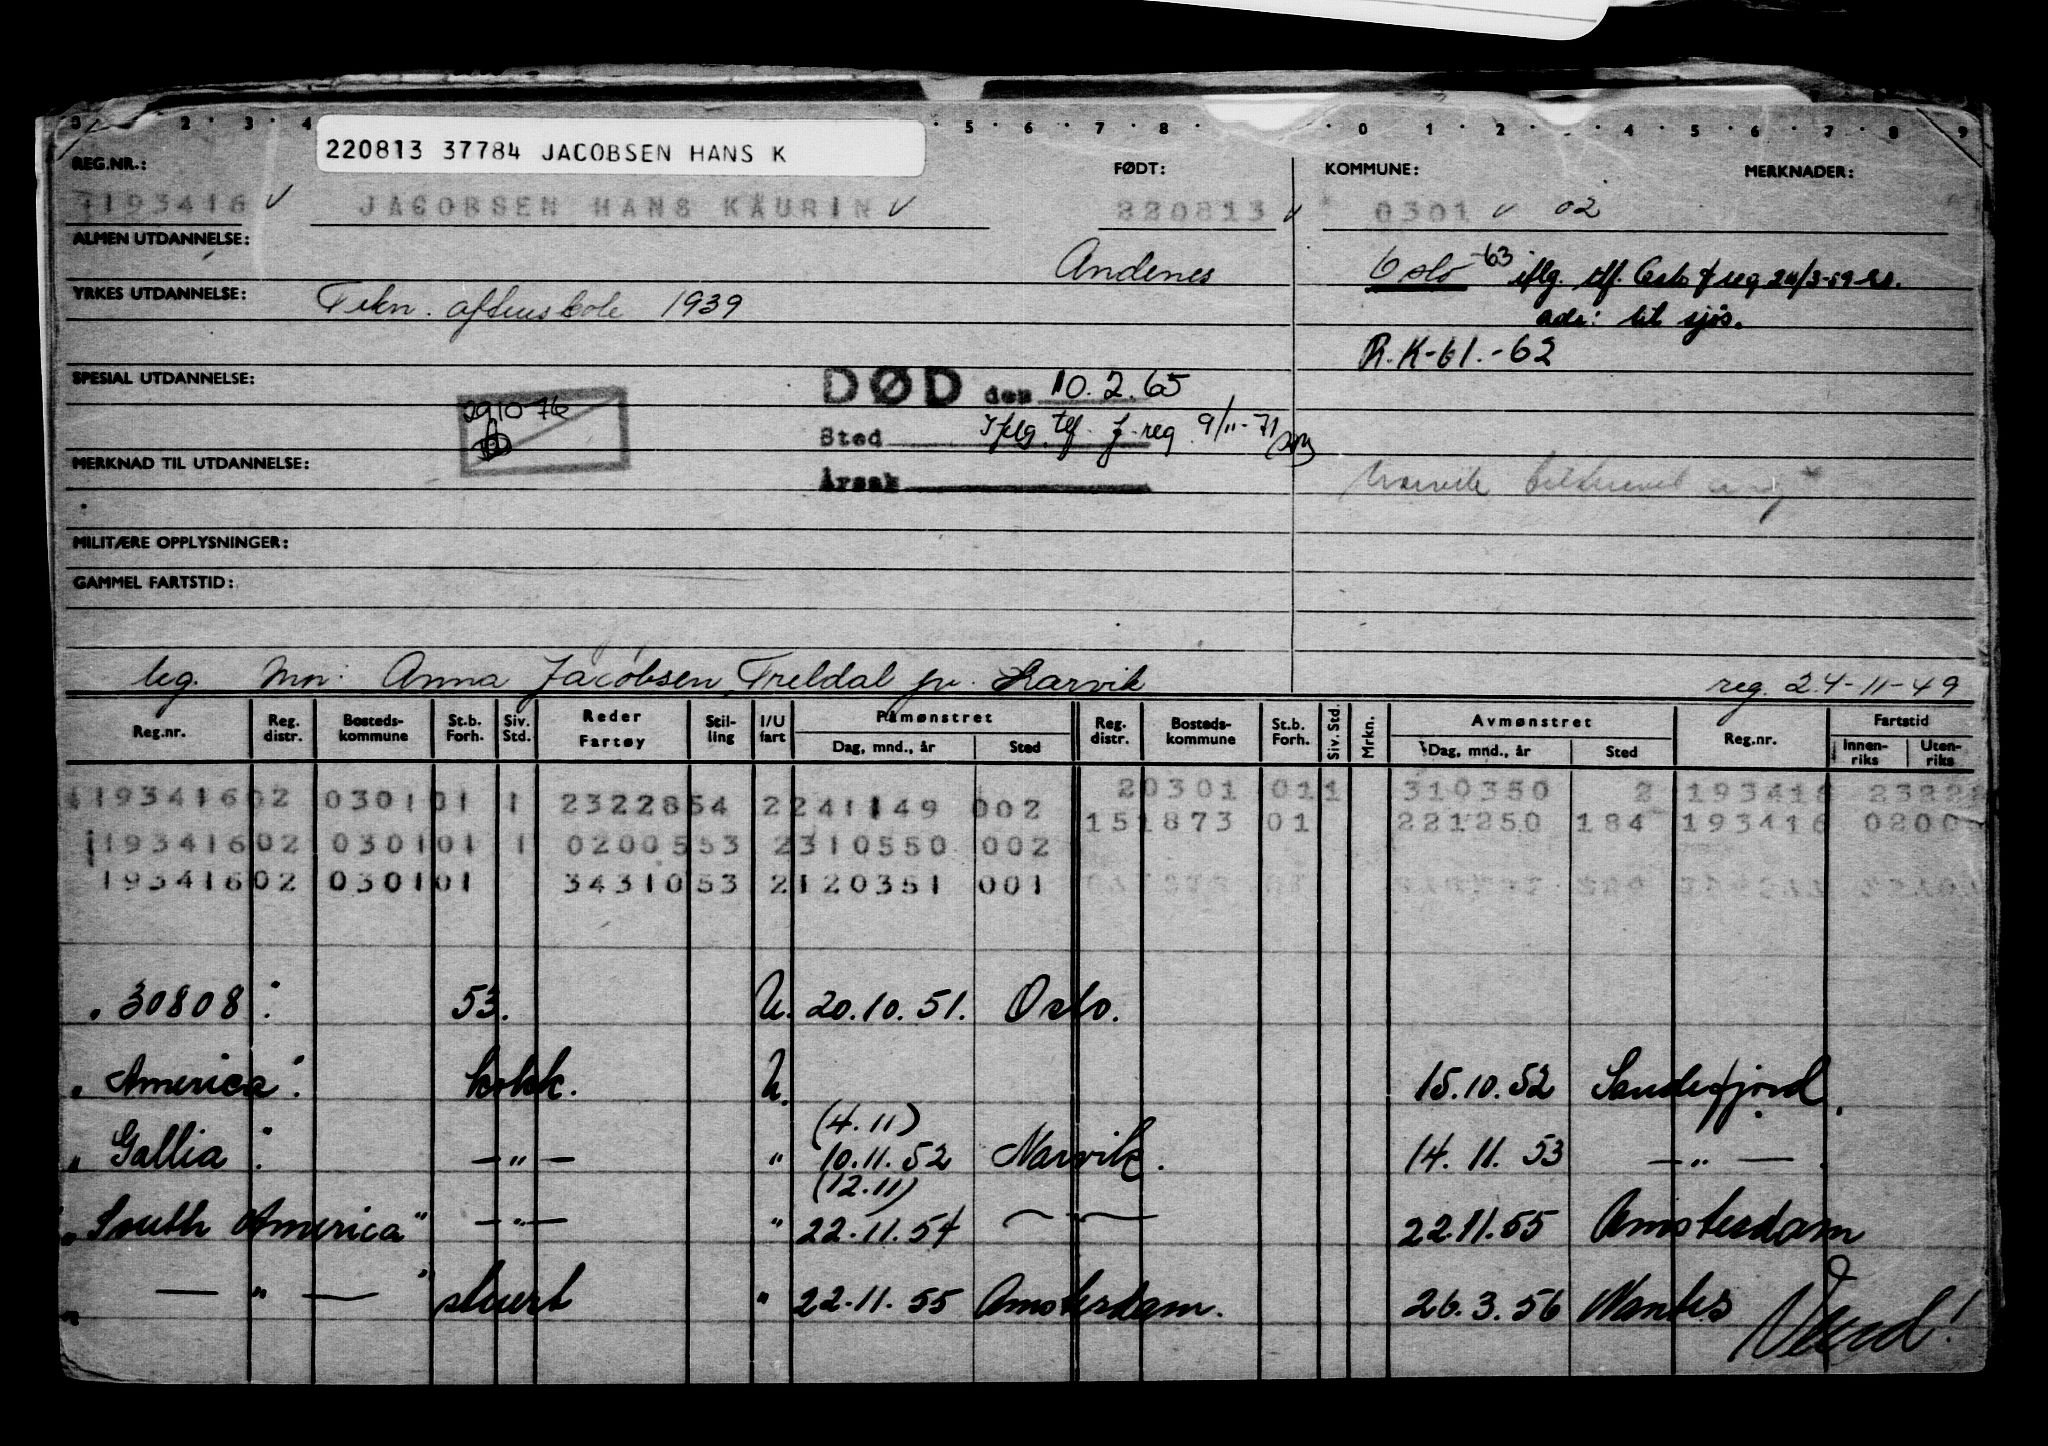 220813 37784 JACOBSEN HANS K
REG.NR.: FØDT: KOMMUNE: MERKNADER:
193416 JACOBSEN HANS KAURIN 220813 0301 02
ALMEN UTDANNELSE: Andenes Oslo -63 iflg. tlf. Oslo f reg 24/3-59
YRKES UTDANNELSE: Tekn. aftenskole 1939 adr: til sjøs.
R.K-61.-62
SPESIAL UTDANNELSE: DØD den 10.2.65
29 10 76 Sted Iflg. tlf. f.reg 9/11-71
MERKNAD TIL UTDANNELSE: Årsak Narvik
MILITÆRE OPPLYSNINGER:
GAMMEL FARTSTID:
leg. Mor: Anna Jacobsen, Treldal pr. Narvik reg. 24-11-49
Reg.nr. Reg. distr. Bosteds- kommune St.b. Forh. Siv. Std. Reder Fartøy Stil- ling I/U fart Påmønstret Dag, mnd., år Sted Reg. distr. Bosteds- kommune St.b. Forh. Siv. Std. Mrkn. Avmønstret Dag, mnd., år Sted Reg.nr. Fartstid Innen- riks Uten- riks
193416 02 0301 01 1 2322854 2 241149 002 20301 011 310350 2 193416
151873 01 221250 184 193416
193416 02 0301 01 1 0200553 2 310550 002
193416 02 0301 01 3431053 2 120351 001
„30808" 53. U. 20.10.51. Oslo.
„America". kokk. U. 15.10.52 Sandefjord.
(4.11)
„Gallia". — " — " 10.11.52 Narvik. 14.11.53 — " —.
(12.11)
„South America" — " — " 22.11.54 — " — 22.11.55 Amsterdam
„ — " — " stuert " 22.11.55 Amsterdam. 26.3.56 Nantes Vend!